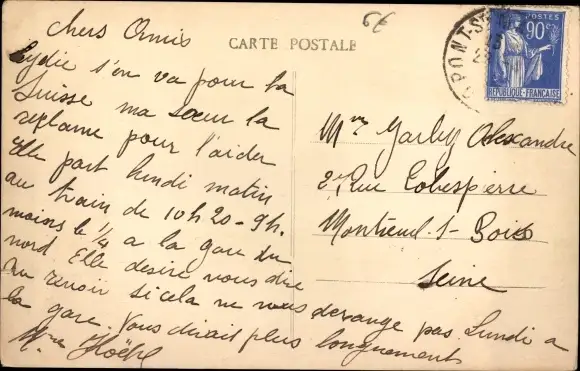 chers Omis
CARTE POSTALE
Lydie s'en va pour la
Suisse ma sœur la
reclame pour l'aider
elle part lundi matin
au train de 10h20-9h.
moins le 1/4 a la gare du
nord Elle desire vous dire
au revoir si cela ne vous derange pas Lundi a
la gare. Vous dirait plus longuement
Mme
POSTES
90c
REPUBLIQUE-FRANÇAISE
PONT-S
Alexandre
2 Rue Robespierre
Montreuil-s-Bois
Seine